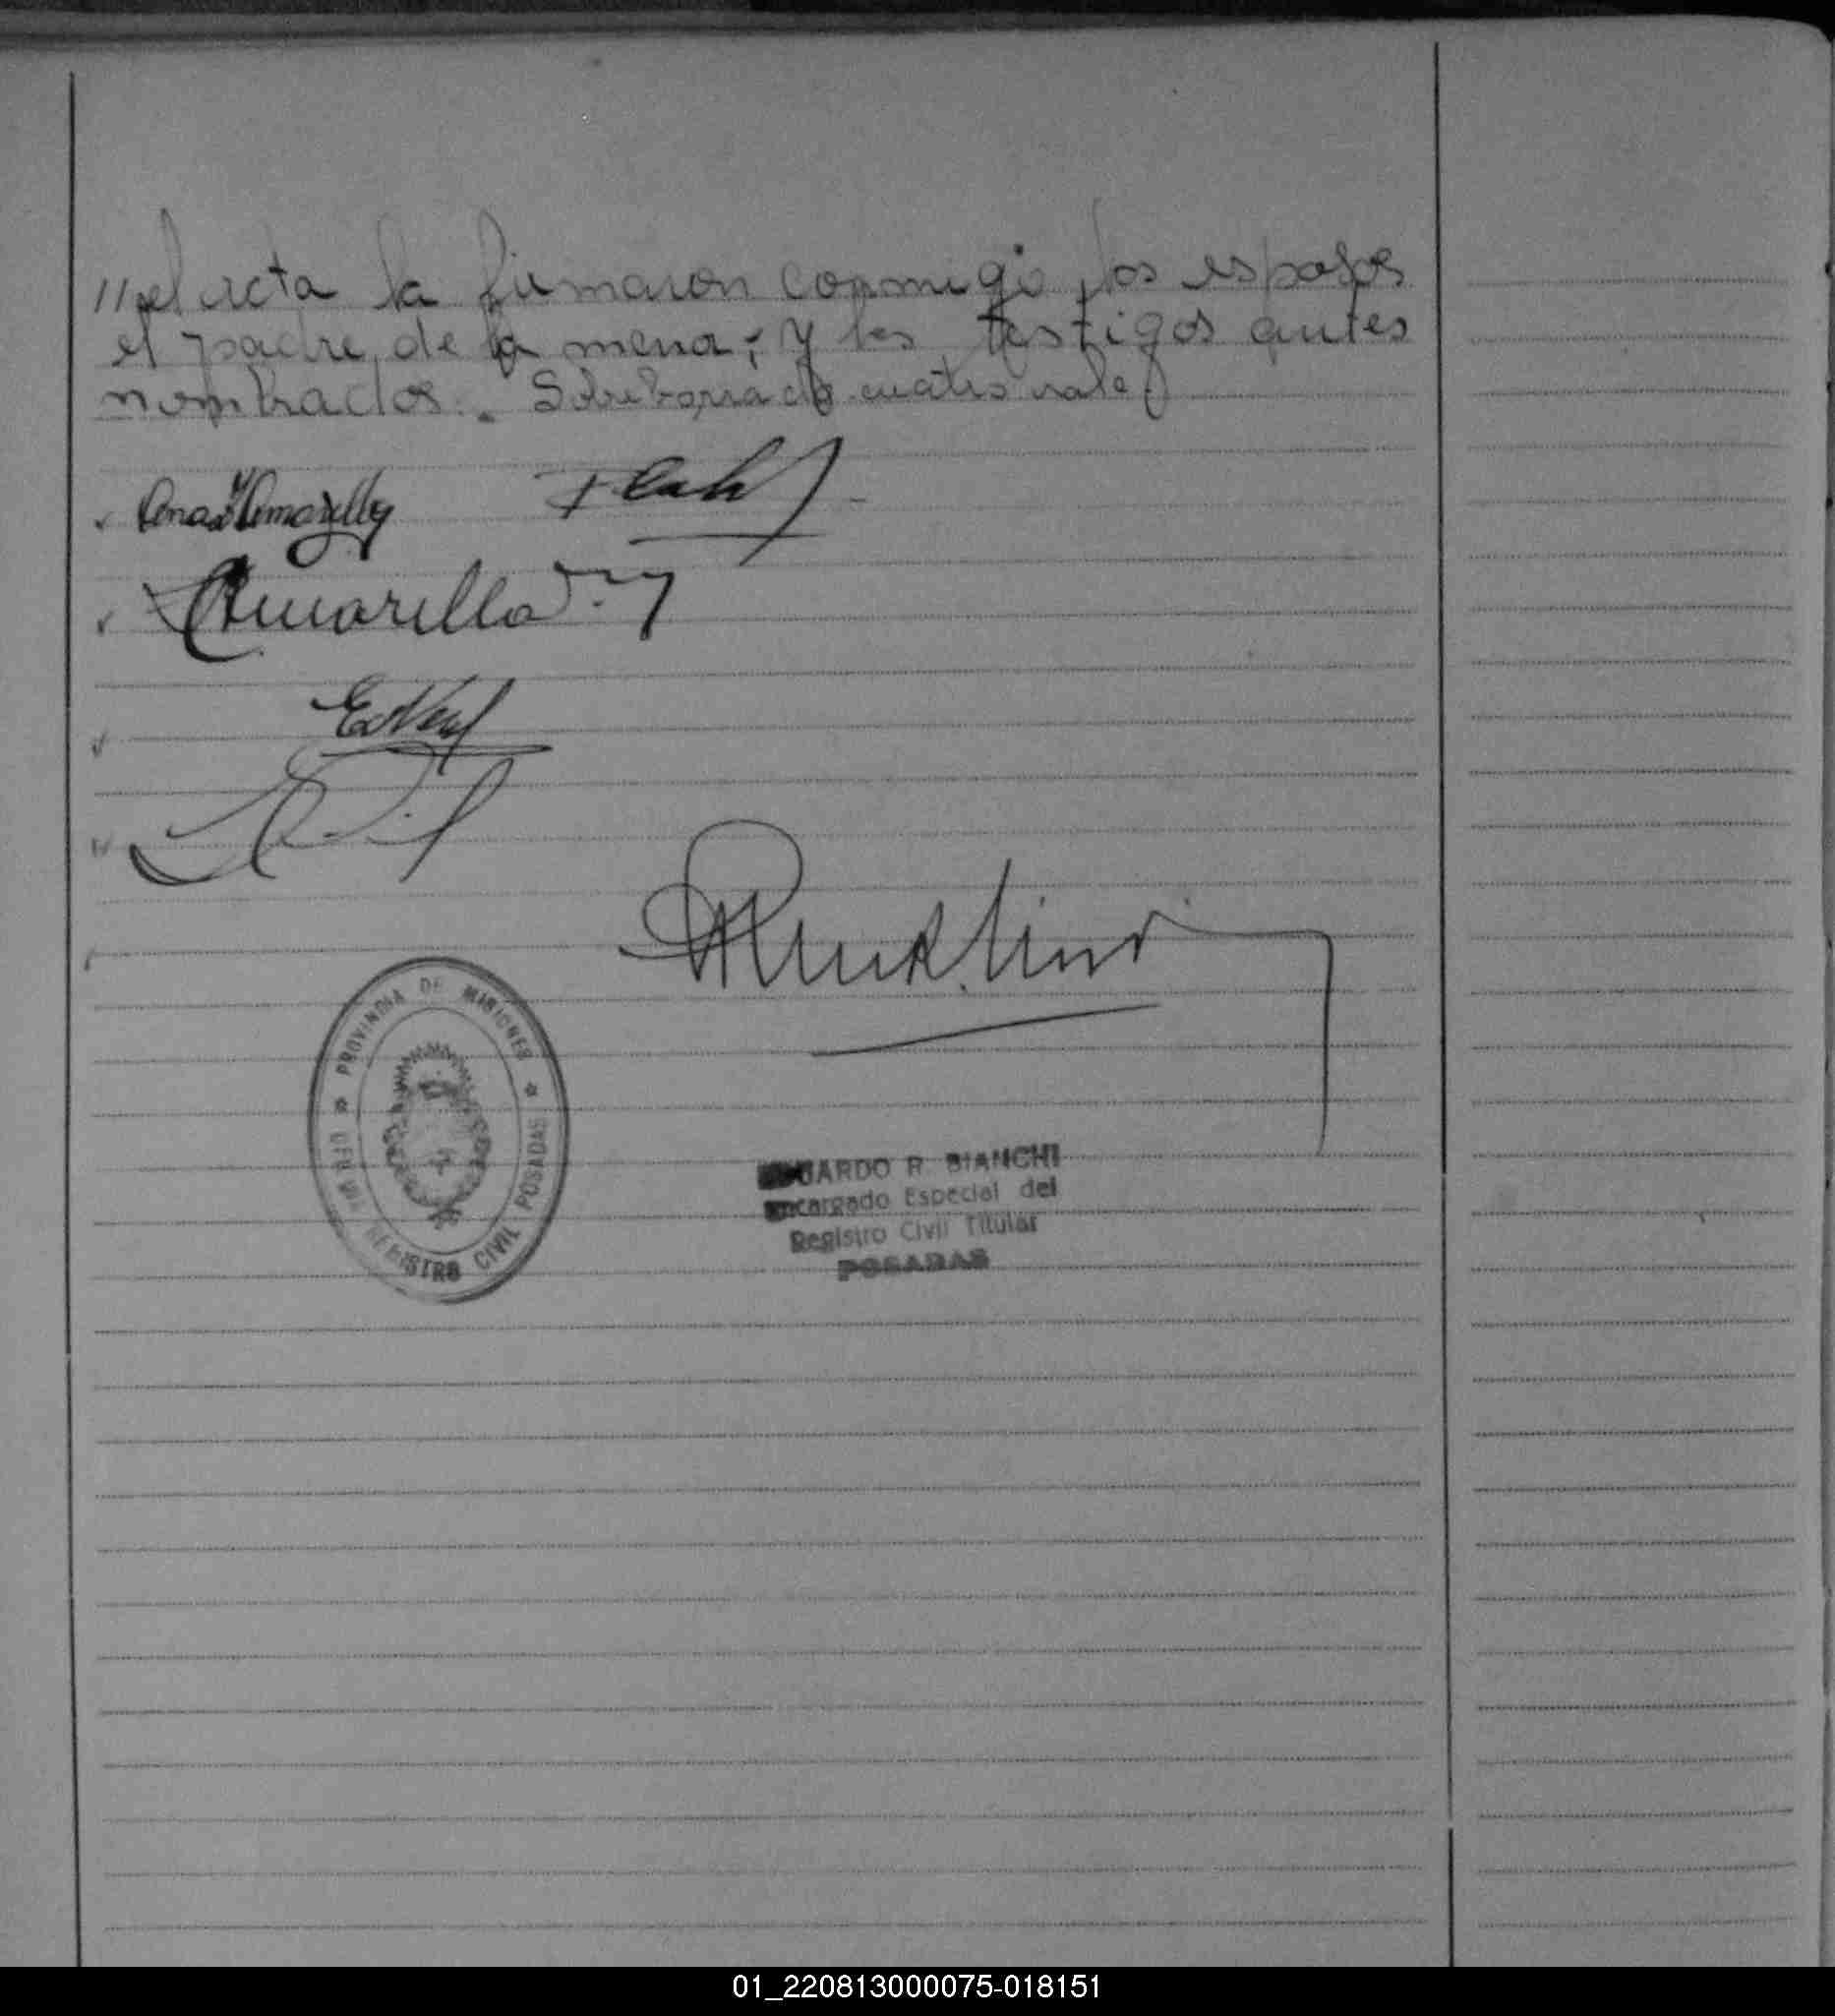 //el acta la firmaron conmigo, los esposos
el padre de la menor; y los testigos antes
nombrados. Sobreborrado cuatro vale
Amarilla
PROVINCIA DE MISIONES
REGISTRO CIVIL POSADAS
EDUARDO R. BIANCHI
Encargado Especial del
Registro Civil Titular
POSADAS
01_220813000075-018151